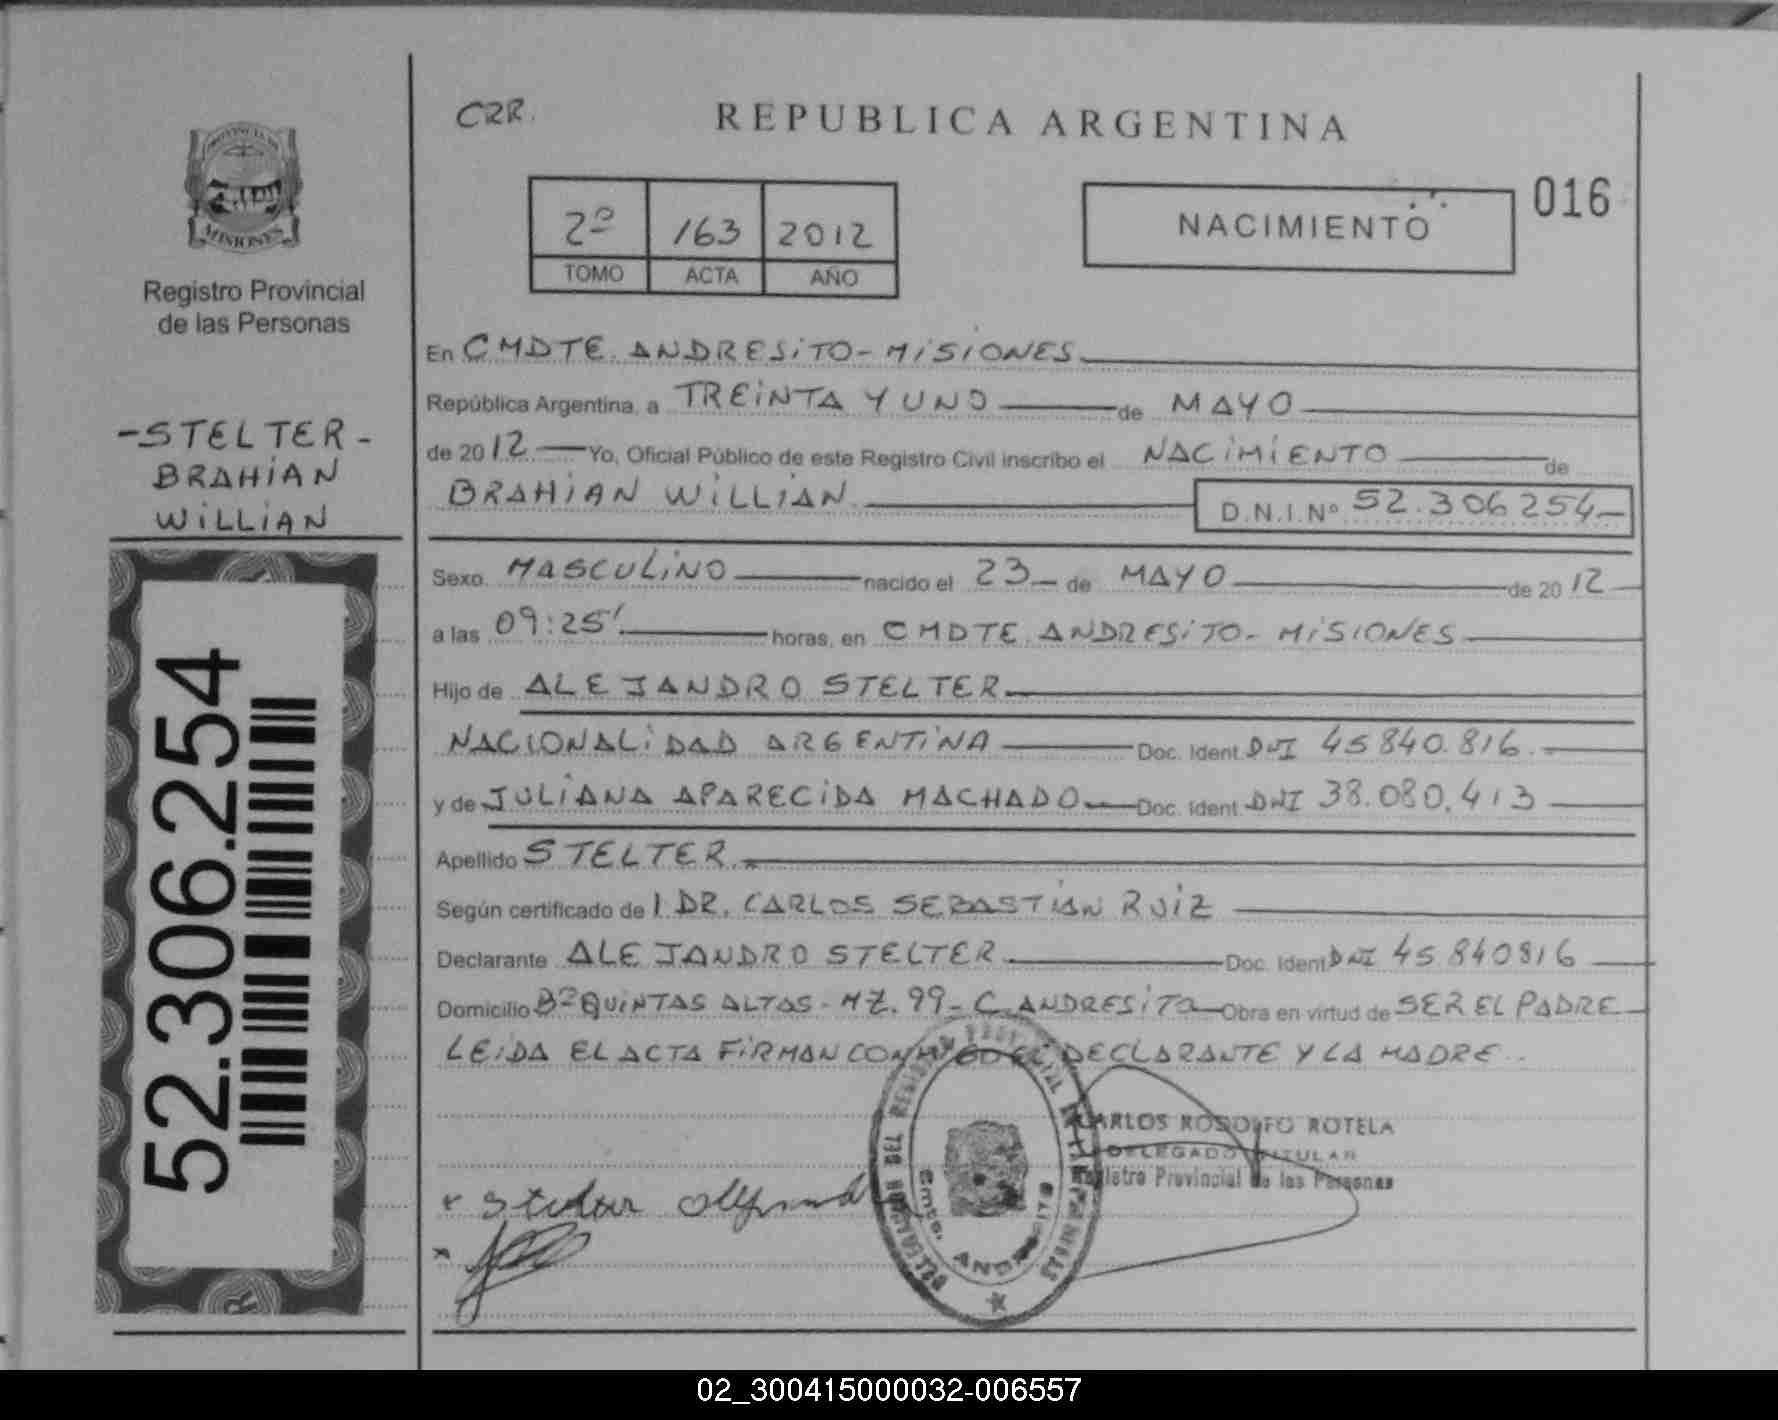 CRR.
REPUBLICA ARGENTINA
016
2º 163 2012
TOMO ACTA AÑO
NACIMIENTO
MISIONES
Registro Provincial
de las Personas
-STELTER-
BRAHIAN
WILLIAN
52.306.254
En CMDTE. ANDRESITO - MISIONES
República Argentina, a TREINTA Y UNO de MAYO
de 2012 Yo, Oficial Público de este Registro Civil inscribo el NACIMIENTO de
BRAHIAN WILLIAN D.N.I.Nº 52.306254
Sexo MASCULINO nacido el 23 de MAYO de 2012
a las 09:25' horas, en CMDTE. ANDRESITO - MISIONES
Hijo de ALEJANDRO STELTER
NACIONALIDAD ARGENTINA Doc. Ident. DNI 45840.816.
y de JULIANA APARECIDA MACHADO Doc. Ident. DNI 38.080.413
Apellido STELTER
Según certificado de l DR. CARLOS SEBASTIAN RUIZ
Declarante ALEJANDRO STELTER Doc. Ident DNI 45.840816
Domicilio Bº QUINTAS ALTAS - MZ. 99 - C. ANDRESITO Obra en virtud de SER EL PADRE
LEIDA EL ACTA FIRMAN CONMIGO EL DECLARANTE Y LA MADRE..
CARLOS RODOLFO ROTELA
DELEGADO TITULAR
Registro Provincial de las Personas
Cmte. ANDRESITO
02_300415000032-006557